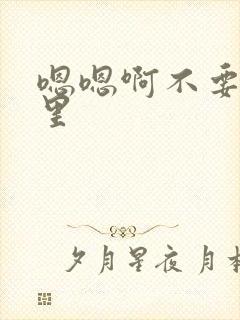 嗯嗯啊不要
里
夕月星夜月